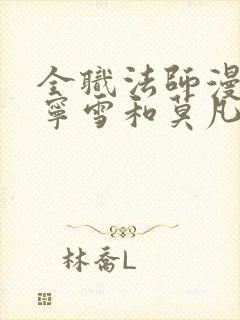 全職法師漫
寧雪和莫凡
林喬L